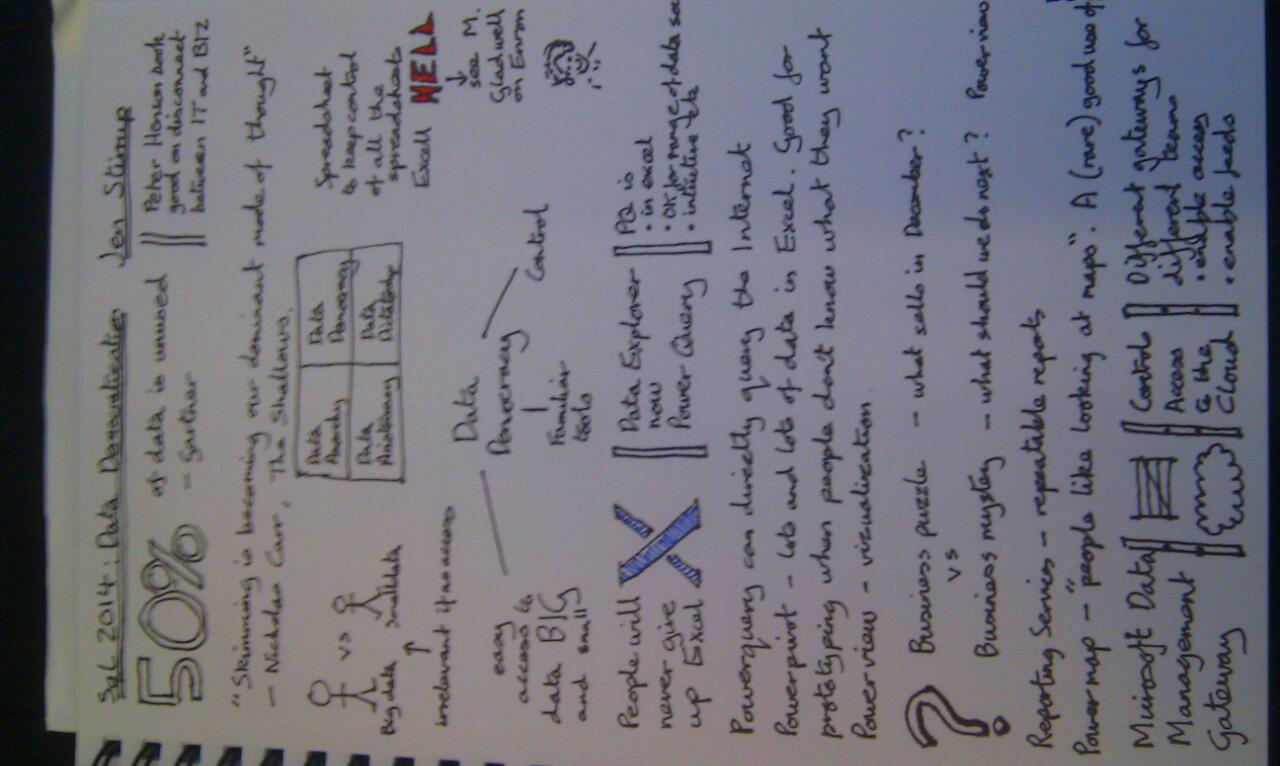 SqL 2014: Data Democratisation Jen Stirrup
50% of data is unused
- Gartner
Peter Henson book
good on disconnect
between IT and BIZ
"Skimming is becoming our dominant mode of thought"
- Nicholas Carr, The Shallows.
vs
Big data Small data
irrelevant if no access
Data Anarchy
Data Democracy
Data Aristocracy
Data Dictatorship
Spreadsheet
to keep control
of all the
spreadsheets
Excell HELL
see M.
Gladwell
on Enron
Data
Democracy
easy
access to
data BIG
and small
Familiar
tools
Control
People will
never give
up Excel
X
Data Explorer
now
Power Query
PQ is
• in excel
• OK for range of data sou
• intuitive etc
Powerquery can directly query the Internet
Powerpivot - lots and lots of data in Excel. Good for
prototyping when people don't know what they want
Powerview - vizualization
? Business puzzle - what sells in December?
vs
Business mystery - what should we do next? Powerview
Reporting Services - repeatable reports
Powermap - "people like looking at maps". A (rare) good use of
Microsoft Data
Management
Gateway
Controls
Access
to the
Cloud
Different gateways for
different teams
• enable access
• enable feeds